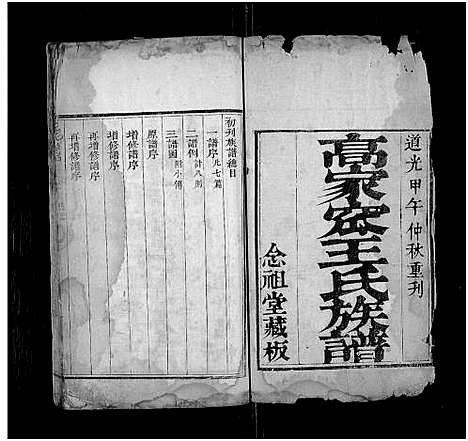 道光甲午仲秋重刊
高家窊王氏族譜
念祖堂藏板
初列族譜總目
一譜序凡七篇
二譜例計八則
三譜圖附小傳
原譜序
增修譜序
增修譜序
再增修譜序
再增修譜序